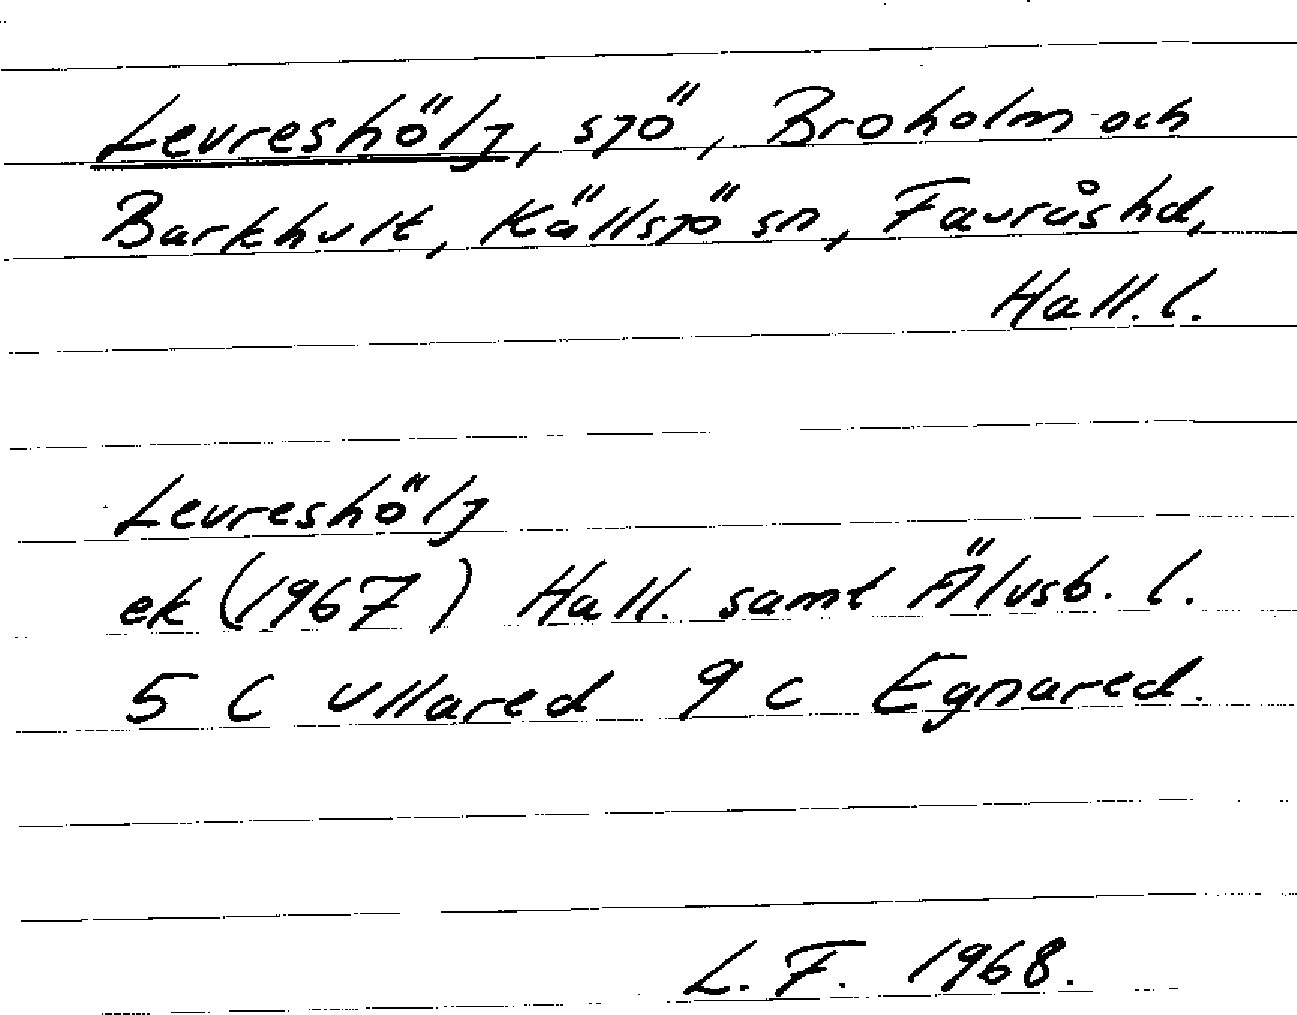 Levreshölj, sjö, Broholm och
Barkhult, Källsjö sn, Faurås hd,
Hall. l.
Levreshölj
ek (1967) Hall. samt Älvsb. l.
5 C Ullared 9 c Egnared.
L. F. 1968.